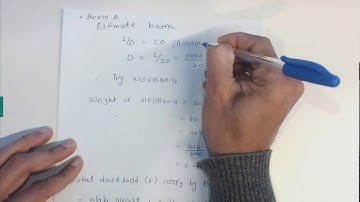 • Beam A
Estimate beam
L/D = 20 (Assum
D = L/20 = 6000
20
∴ Try 310UB40.4
Weight of 310UB40.4 = 40.
= 40.
= 404
= 404
1000
= 0.4
dead load (G) carry by B
= slab weight